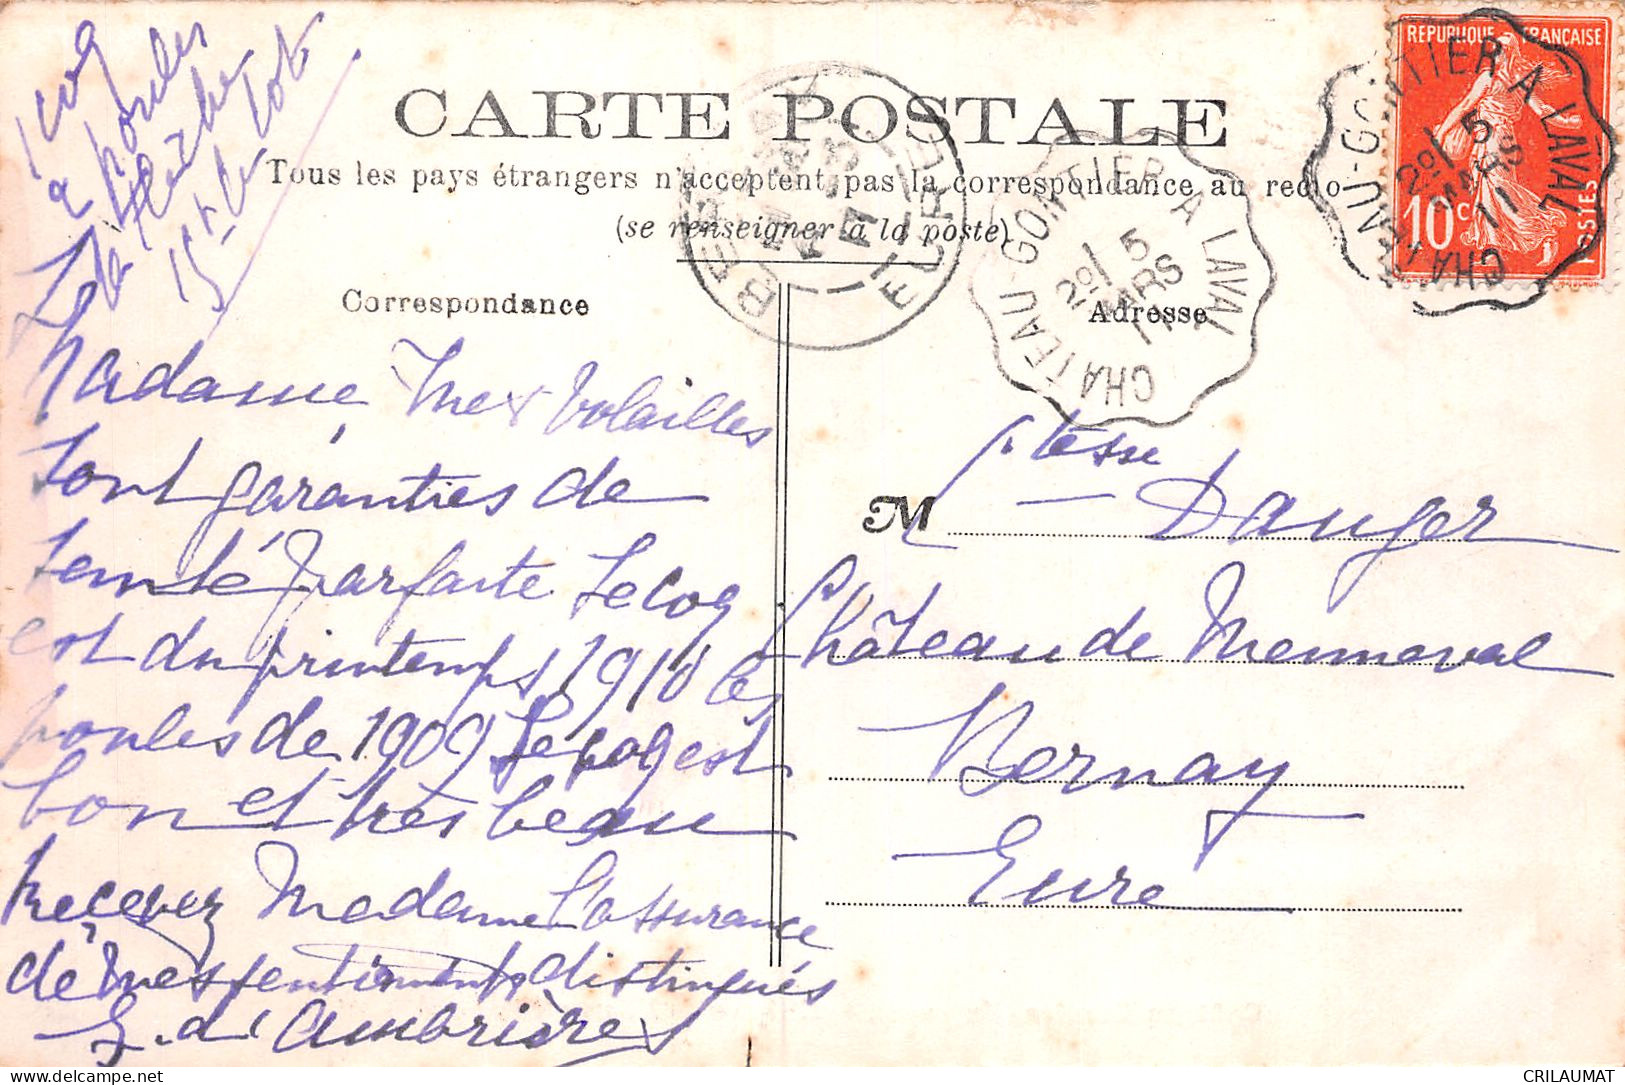 1 coq
2 poules
la flèche
15 le lot
CARTE POSTALE
Tous les pays étrangers n'acceptent pas la correspondance au recto
(se renseigner à la poste)
Correspondance
Adresse
Madame Mes Volailles
sont garanties de
santé parfaite Le coq
est du printemps 1910 les
poules de 1909 Le coq est
bon et très beau
Recevez Madame l'assurance
de mes sentiments distingués
d'Ambrières
M Ctesse Dauger
Château de Menneval
Bernay
Eure
REPUBLIQUE FRANÇAISE
10 c
POSTES
CHATEAU-GONTIER A LAVAL
2º/ 5
MARS
11
CHATEAU-GONTIER A LAVAL
2º/ 5
MARS
11
BERNAY
EURE
CRILAUMAT